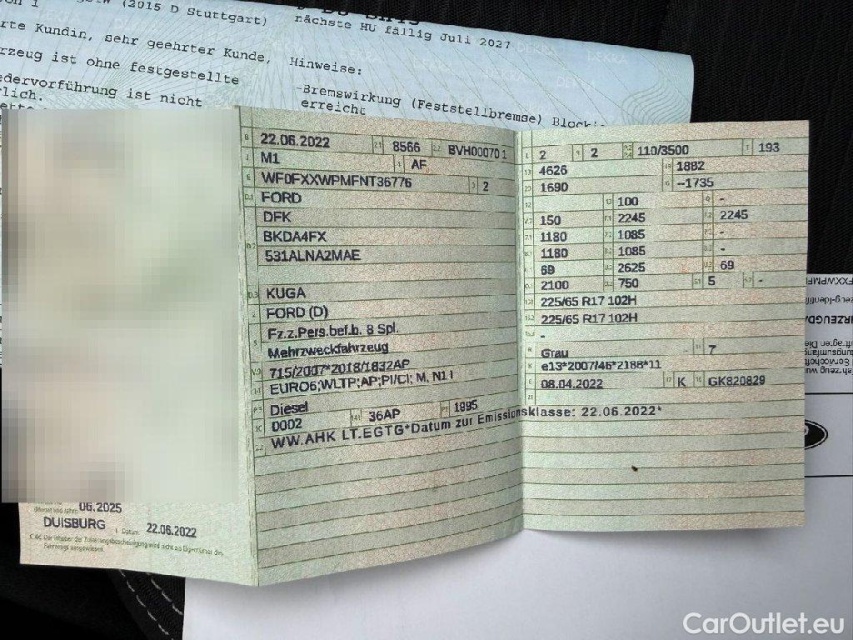 (2015 D Stuttgart)
nächste HU fällig Juli 2027
rte Kundin, sehr geehrter Kunde,
Hinweise:
rzeug ist ohne festgestellte
-Bremswirkung (Feststellbremse)
edervorführung ist nicht
erreicht
rlich.
22.06.2022 8566 BVH00070 1
M1 AF
WF0FXXWPMFNT36776 2
FORD
DFK
BKDA4FX
531ALNA2MAE
KUGA
FORD (D)
Fz.z.Pers.bef.b. 8 Spl.
Mehrzweckfahrzeug
715/2007*2018/1832AP
EURO6;WLTP;AP;PI/CI; M, N1 I
Diesel
0002 36AP 1995
WW.AHK LT.EGTG*Datum zur Emissionsklasse: 22.06.2022*
2 2 110/3500 193
4626 1882
1690 --1735
100 -
150 2245 2245
1180 1085 -
1180 1085 -
69 2625 69
2100 750 5 -
225/65 R17 102H
225/65 R17 102H
-
Grau - 7
e13*2007/46*2188*11
08.04.2022 K GK820829
06.2025
DUISBURG Datum 22.06.2022
CarOutlet.eu